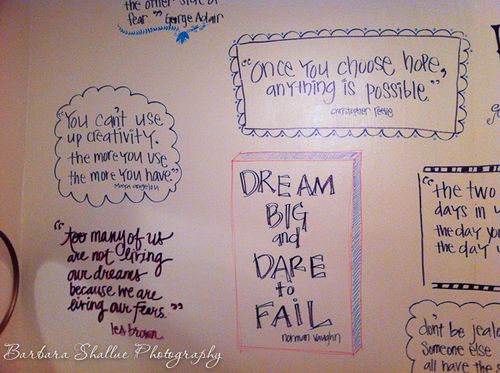 the other side of
fear." George Adair
"Once you choose hope,
anything is possible."
christopher reeve
"You can't use
up creativity.
the more you use
the more you have."
Maya angelou
DREAM
BIG
and
DARE
to
FAIL
norman vaughn
"too many of us
are not living
our dreams
because we are
living our fears."
les brown
"the two
days in y
the day yo
the day
don't be jealo
Someone else
all have the s
Barbara Shallue Photography